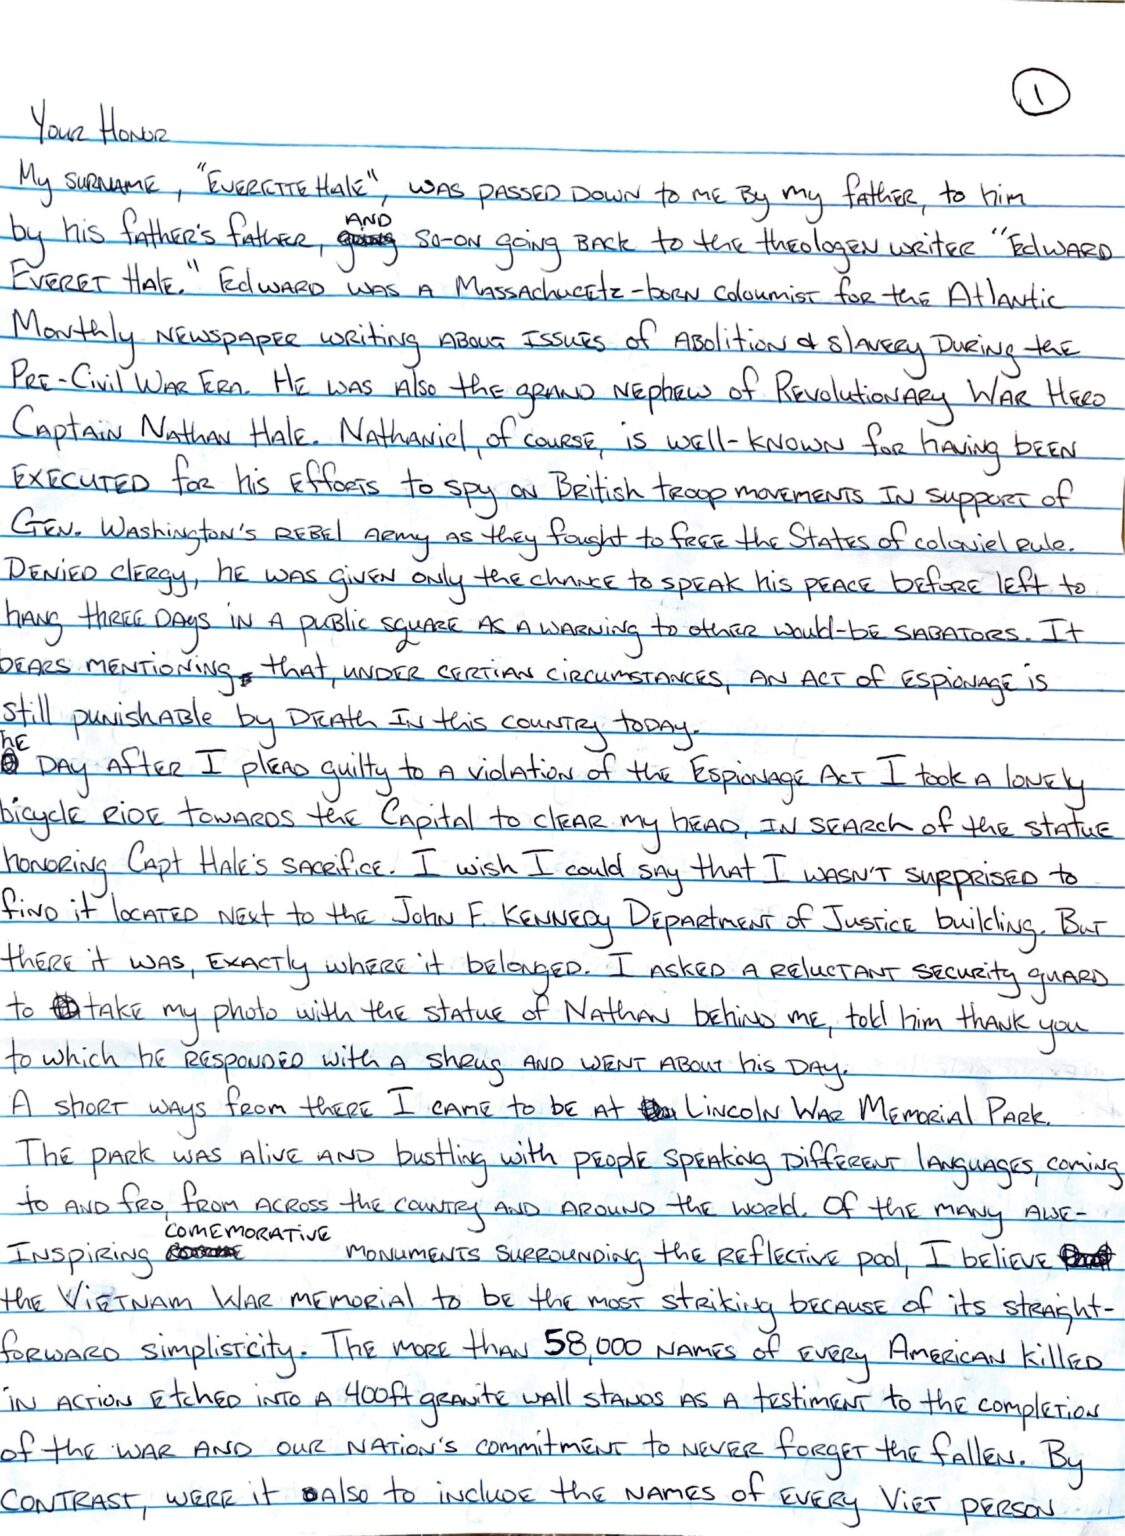 1
Your Honor
My surname, "Everette Hale", was passed down to me by my father, to him
by his father's father, and so-on going back to the theologen writer "Edward
Everet Hale." Edward was a Massachucetz-born coloumist for the Atlantic
Monthly newspaper writing about issues of abolition & slavery during the
Pre-Civil War Era. He was also the grand nephew of Revolutionary War Hero
Captain Nathan Hale. Nathaniel, of course, is well-known for having been
executed for his efforts to spy on British troop movements in support of
Gen. Washington's rebel army as they fought to free the States of coloniel rule.
Denied clergy, he was given only the chance to speak his peace before left to
hang three days in a public square as a warning to other would-be sabators. It
bears mentioning, that, under certian circumstances, an act of espionage is
still punishable by death in this country today.
he Day after I plead guilty to a violation of the Espionage Act I took a lonely
bicycle ride towards the Capital to clear my head, in search of the statue
honoring Capt Hale's sacrifice. I wish I could say that I wasn't surprised to
find it located next to the John F. Kennedy Department of Justice building. But
there it was, exactly where it belonged. I asked a reluctant security guard
to take my photo with the statue of Nathan behind me, told him thank you
to which he responded with a shrug and went about his day.
A short ways from there I came to be at Lincoln War Memorial Park.
The park was alive and bustling with people speaking different languages, coming
to and fro, from across the country and around the world. Of the many awe-
inspiring comemorative monuments surrounding the reflective pool, I believe
the Vietnam War memorial to be the most striking because of its straight-
forward simplisticity. The more than 58,000 names of every American killed
in action etched into a 400ft granite wall stands as a testiment to the completion
of the war and our nation's commitment to never forget the fallen. By
contrast, were it also to include the names of every Viet person